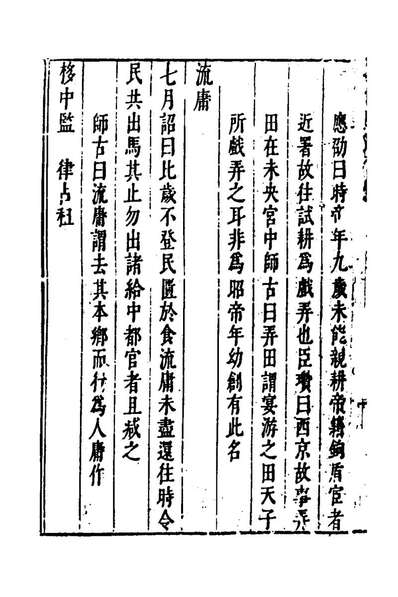 應劭曰時帝年九歲未能親耕帝籍鉤盾宦者
近署故往試耕爲戲弄也臣瓚曰西京故事弄
田在未央宮中師古曰弄田謂宴游之田天子
所戲弄之耳非爲昭帝年幼創有此名
流庸
七月詔曰比歲不登民匱於食流庸未盡還往時令
民共出馬其止勿出諸給中都官者且減之
師古曰流庸謂去其本鄉而行爲人庸作
栘中監 律占租